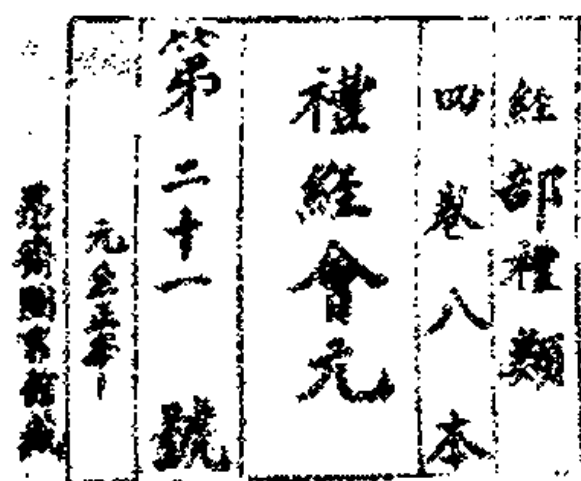 經部禮類
四卷八本
禮經會元
第二十一號
元至正